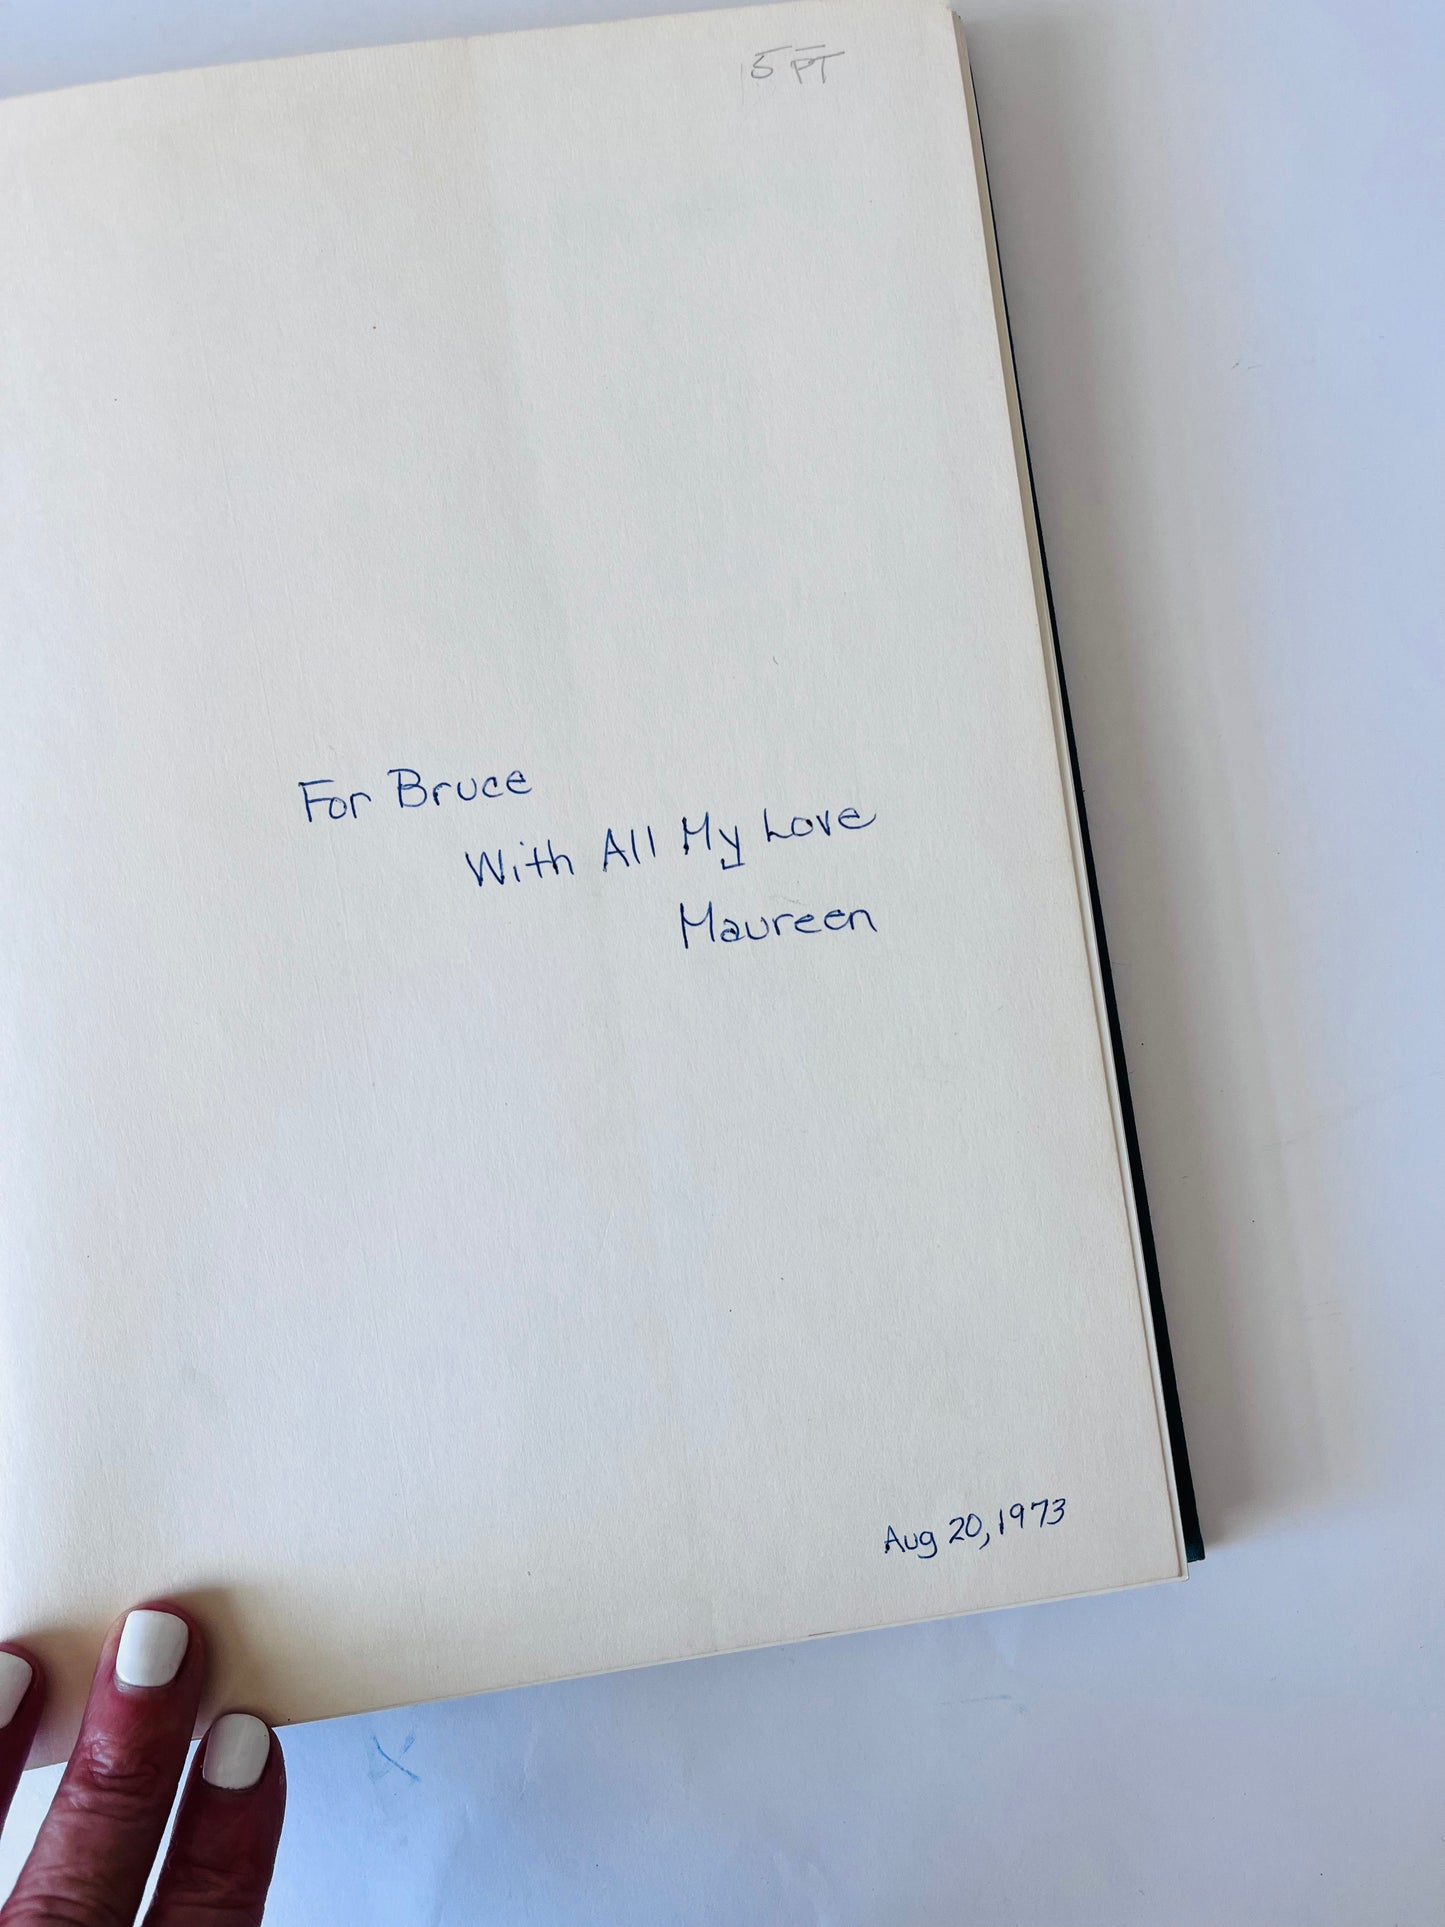 5 PT
For Bruce
With All My Love
Maureen
Aug 20, 1973